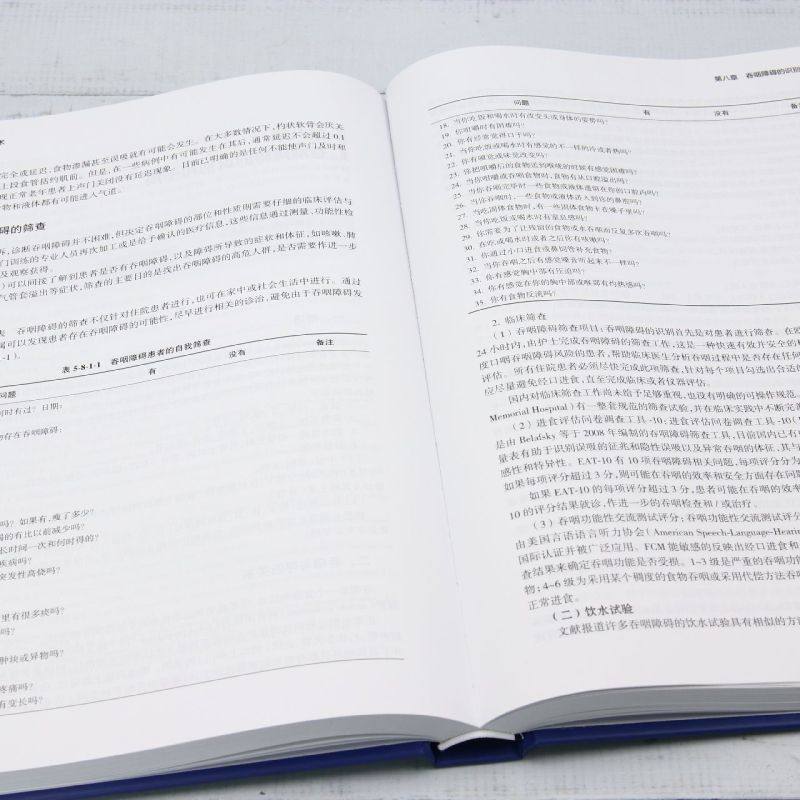 术
完全或延迟，食物渗漏甚至误吸就有可能会发生。在大多数情况下，杓状软骨会厌关
上段食管括约肌前。但是，在一些病例中有可能发生在其后，通常延迟不会超过0.1
现正常老年患者上声门关闭没有延迟现象。目前已明确的是任何不能使声门及时和
物和液体都有可能进入气道。
碍的筛查
诉，诊断吞咽障碍并不困难，但决定吞咽障碍的部位和性质则需要仔细的临床评估与
门训练的专业人员再次加工或是给予确认的医疗信息，这些信息通过测量、功能性检
及观察获得。
）可以间接了解到患者是否有吞咽障碍，以及障碍所导致的症状和体征，如咳嗽、肺
气管套溢出等症状，筛查的主要目的是找出吞咽障碍的高危人群，是否需要作进一步
表 吞咽障碍的筛查不仅针对住院患者进行，也可在家中或社会生活中进行。通过
属可以发现患者存在吞咽障碍的可能性，尽早进行相关的诊治，避免由于吞咽障碍发
-1）。
表 5-8-1-1 吞咽障碍患者的自我筛查
问题 有 没有 备注
何时有过？日期：
物存在吞咽障碍：
吗？如果有，瘦了多少？
喝的有比以前减少吗？
长时间一次和何时得的？
疾病吗？
突发性高烧吗？
里有很多痰吗？
吗？
肿块或异物吗？
疼痛吗？
有变长吗？
第八章 吞咽障碍的识别
问题 有 没有 备注
18. 当你吃饭和喝水时有改变头或身体的姿势吗？
19. 你咀嚼时有困难吗？
20. 你有经常觉得口干吗？
21. 当你吃饭或喝水时有感觉的不一样的冷或者热吗？
22. 你有嗅觉或味觉改变吗？
23. 你把咀嚼后的食物送到喉咙的时候有感觉困难吗？
24. 当你咀嚼或吞咽食物时，食物有从口腔溢出吗？
25. 当你吞咽完毕时一些食物或液体遗留在你的口腔内吗？
26. 当你吞咽时，一些食物或液体进入到你的鼻腔吗？
27. 当吃固体食物时，有一些固体食物卡在嗓子里吗？
28. 当你吃饭或喝水时有窒息感吗？
29. 你需要为了让残留的食物或水吞咽而反复多次吞咽吗？
30. 在吃或喝水时或者之后你有咳嗽吗？
31. 你通过小口进食或鼻饲管补充食物？
32. 当你吞咽之后有感觉嗓音听起来不一样吗？
33. 你有感觉胸中部有压迫吗？
34. 你有感觉在你的胸中部或喉部有灼热感吗？
35. 你有食物反流吗？
2. 临床筛查
（1）吞咽障碍筛查项目：吞咽障碍的识别首先是对患者进行筛查。在
24小时内，由护士完成吞咽障碍的筛查工作，这是一种快速有效并安全的
度口咽吞咽障碍风险的患者，帮助临床医生分析吞咽过程中是否存在任何
评估。所有住院患者必须尽快完成此项筛查，针对每个项目勾选出合适的
应尽量避免经口进食，直至完成临床或者仪器评估。
国内对临床筛查工作尚未给予足够重视，也没有明确的可操作规范。
Memorial Hospital）有一整套规范的筛查试验，并在临床实践中不断完善
（2）进食评估问卷调查工具-10：进食评估问卷调查工具-10（
是由 Belafsky 等于 2008 年编制的吞咽障碍筛查工具，目前国内已有
量表有助于识别误吸的征兆和隐性误吸以及异常吞咽的体征，其与
感性和特异性。EAT-10 有 10 项吞咽障碍相关问题，每项评分分为
如果每项评分超过 3 分，则可能在吞咽的效率和安全方面存在问题
如果 EAT-10 的每项评分超过 3 分，患者可能在吞咽的效率
10 的评分结果就诊，作进一步的吞咽检查和 / 或治疗。
（3）吞咽功能性交流测试评分：吞咽功能性交流测试评分
由美国言语语言听力协会（American Speech-Language-Hearin
国际认证并被广泛应用。FCM 能敏感的反映出经口进食和
查结果来确定吞咽功能是否受损。1~3 级是严重的吞咽功
物；4~6 级为采用某个稠度的食物吞咽或采用代偿方法吞咽
正常进食。
（二）饮水试验
文献报道许多吞咽障碍的饮水试验具有相似的方